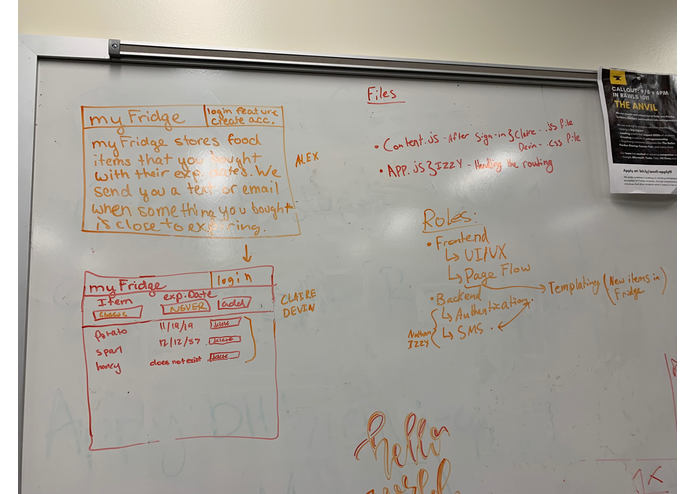 myFridge
login feature
create acc.
myFridge stores food
items that you bought
with their exp. dates. We
send you a text or email
when something you bought
is close to expiring.
ALEX
myFridge
login
Item
exp. Date
NEVER
add
potato
11/19/19
spam
12/12/57
honey
does not exist
CLAIRE
DEVIN
Files
• Content.js - After Sign-in } Claire - .js File
Devin - CSS File
• APP.js } IZZY - Handling the routing
Roles:
• Frontend
↳ UI/UX
↳ Page Flow
Templating (New items in
Fridge)
• Backend
↳ Authentication
↳ SMS
Nathan
IZZY
hello
world
CALLOUT: 9/5 @ 6PM
IN RAWLS 1011
THE ANVIL